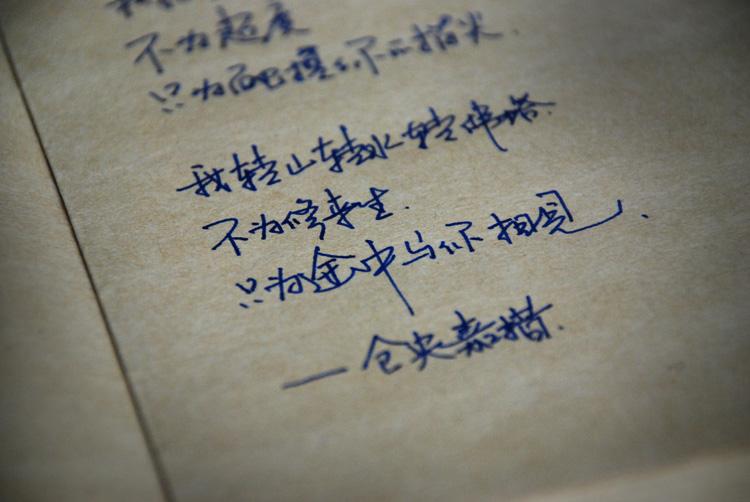 不为超度
只为触摸你的指尖.
我转山转水转佛塔.
不为修来生.
只为途中与你相见.
—仓央嘉措.